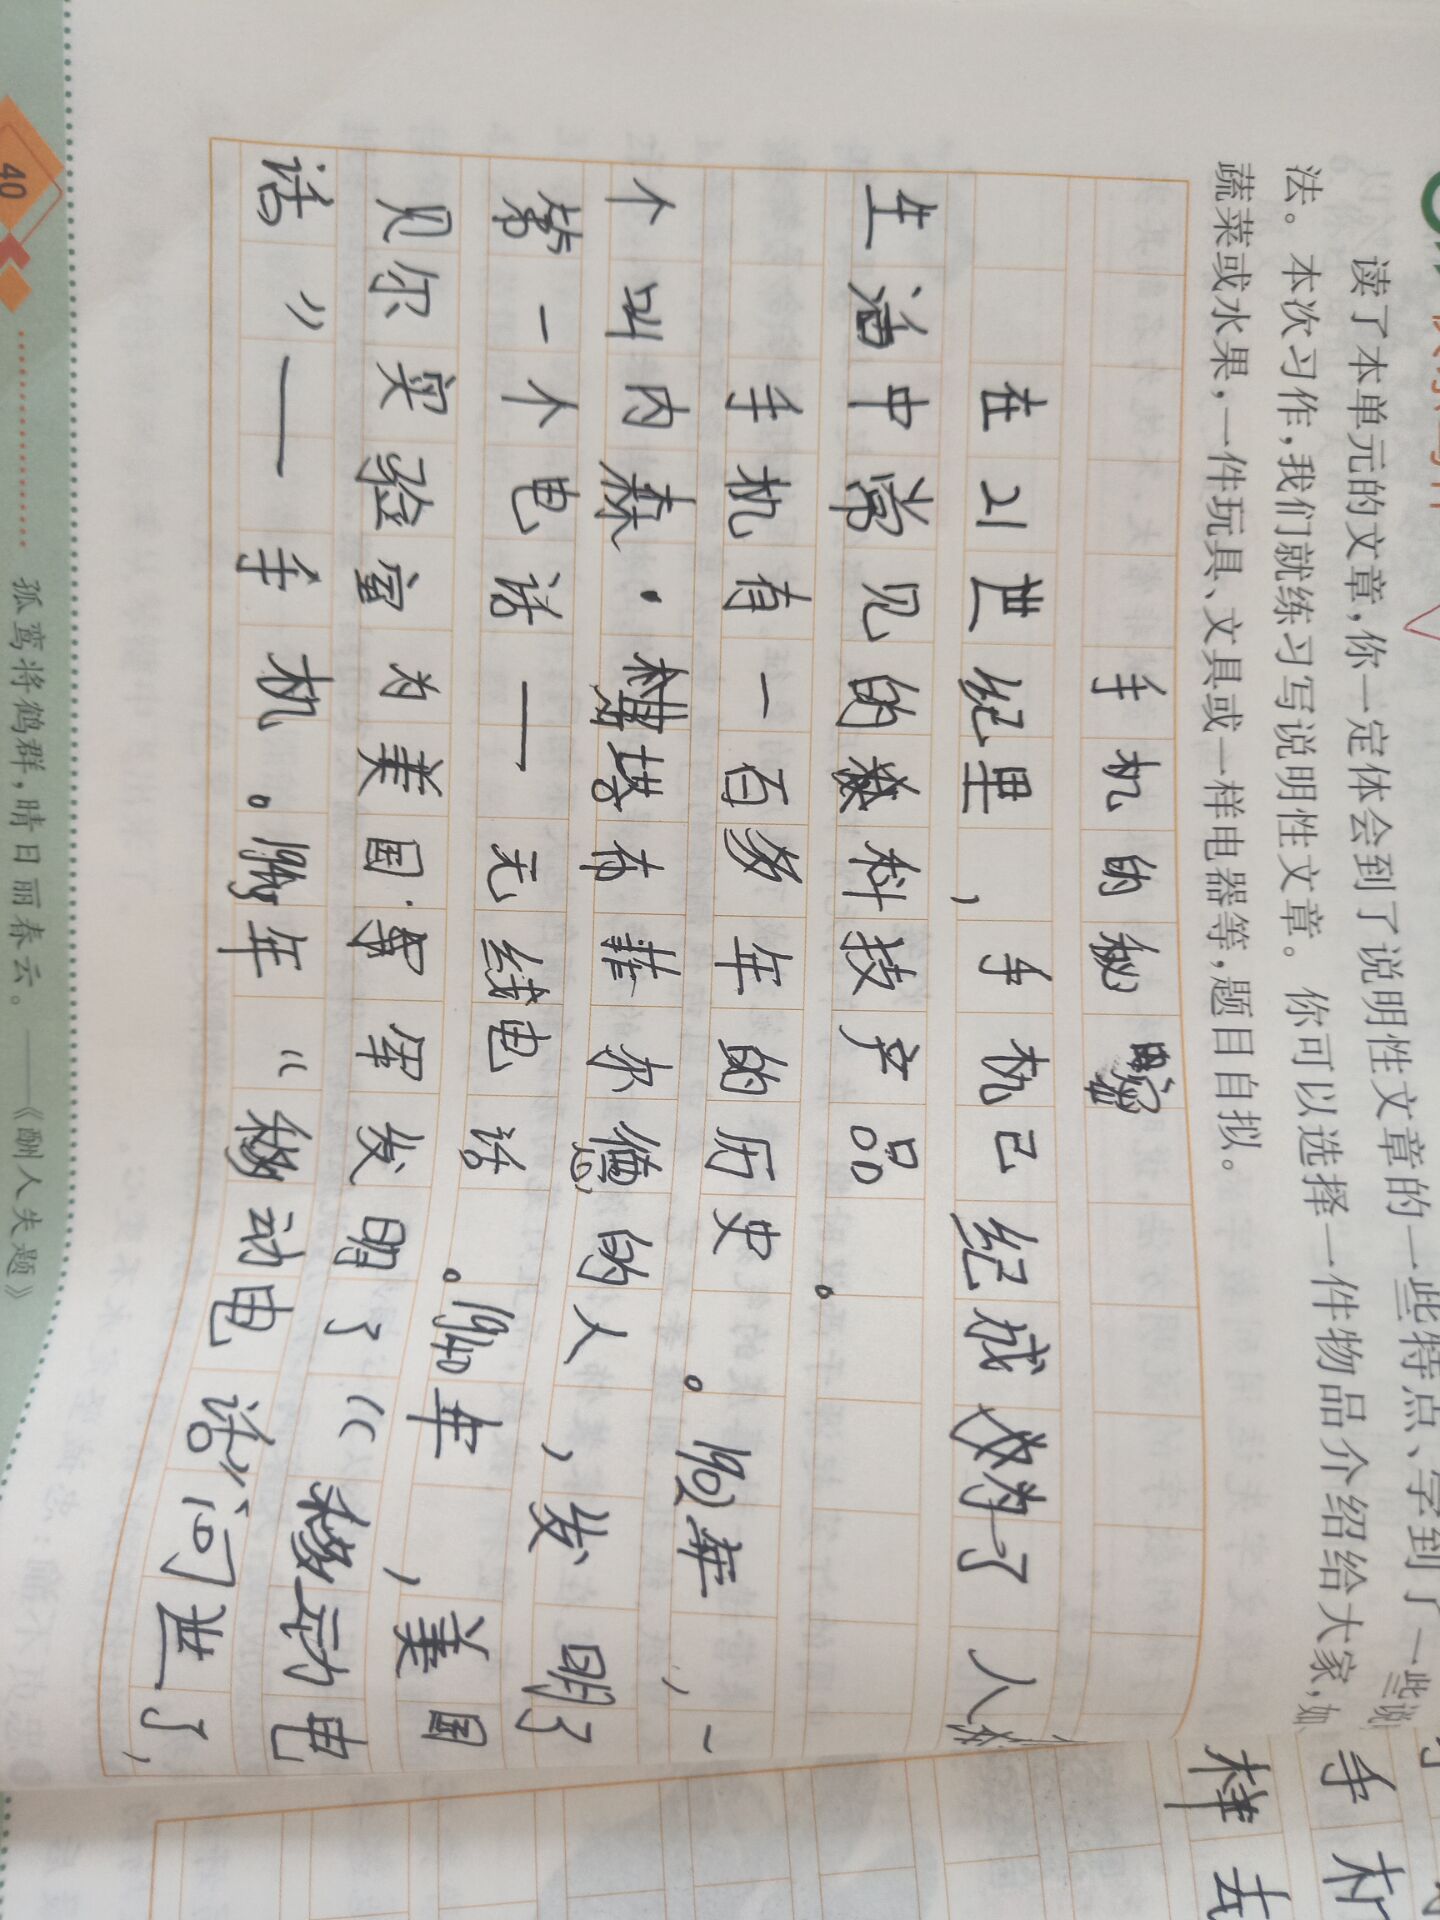 读了本单元的文章，你一定体会到了说明性文章的一些特点、学到了一些说
法。本次习作，我们就练习写说明性文章。你可以选择一件物品介绍给大家，如
蔬菜或水果，一件玩具、文具或一样电器等，题目自拟。
手机的秘密
在21世纪里，手机已经成为了人们
生活中常见的科技产品。
手机有一百多年的历史。1902年，一
个叫内森·斯塔布菲尔德的人，发明了
第一个电话——无线电话。1940年，美国
贝尔实验室为美国军军发明了“移动电
话”——手机。年“移动电话”问世了，
40
孤鸾将鹤群，晴日丽春云。——《酬人失题》
手机
样去